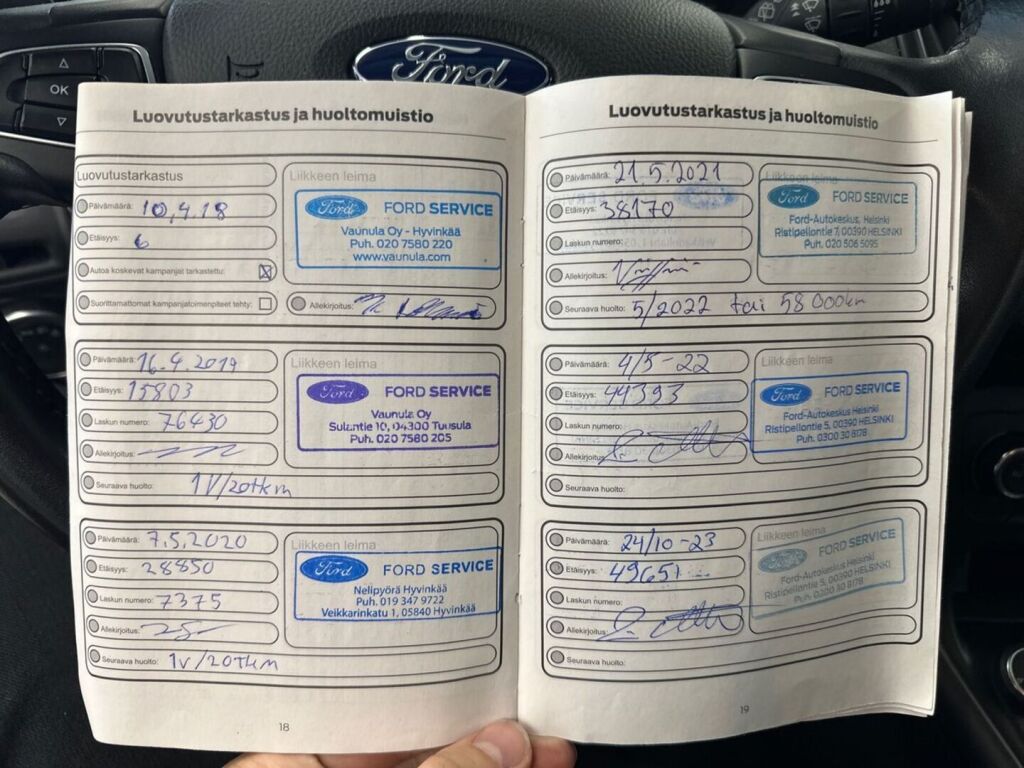 OK
Ford
Luovutustarkastus ja huoltomuistio
Luovutustarkastus
Liikkeen leima
Päivämäärä: 10.4.18
Etäisyys: 6
Autoa koskevat kampanjat tarkastettu:
Suorittamattomat kampanjatoimenpiteet tehty:
Ford FORD SERVICE
Vaunula Oy - Hyvinkää
Puh. 020 7580 220
www.vaunula.com
Allekirjoitus:
Päivämäärä: 16.4.2019
Etäisyys: 15803
Laskun numero: 76430
Allekirjoitus:
Seuraava huolto: 1V/20tkm
Liikkeen leima
Ford FORD SERVICE
Vaunula Oy
Sulantie 10, 04300 Tuusula
Puh. 020 7580 205
Päivämäärä: 7.5.2020
Etäisyys: 28850
Laskun numero: 7375
Allekirjoitus:
Seuraava huolto: 1v/20tkm
Liikkeen leima
Ford FORD SERVICE
Nelipyörä Hyvinkää
Puh. 019 347 9722
Veikkarinkatu 1, 05840 Hyvinkää
18
Luovutustarkastus ja huoltomuistio
Päivämäärä: 21.5.2021
Etäisyys: 38170
Laskun numero:
Allekirjoitus:
Seuraava huolto: 5/2022 tai 58 000km
Liikkeen leima
Ford FORD SERVICE
Ford-Autokeskus, Helsinki
Ristipellontie 7, 00390 HELSINKI
Puh. 020 506 5095
Päivämäärä: 4/5-22
Etäisyys: 44393
Laskun numero:
Allekirjoitus:
Seuraava huolto:
Liikkeen leima
Ford FORD SERVICE
Ford-Autokeskus Helsinki
Ristipellontie 5, 00390 HELSINKI
Puh. 0300 30 8178
Päivämäärä: 24/10-23
Etäisyys: 49651
Laskun numero:
Allekirjoitus:
Seuraava huolto:
Liikkeen leima
Ford FORD SERVICE
Ford-Autokeskus Helsinki
Ristipellontie 5, 00390 HELSINKI
Puh. 0300 30 8178
19